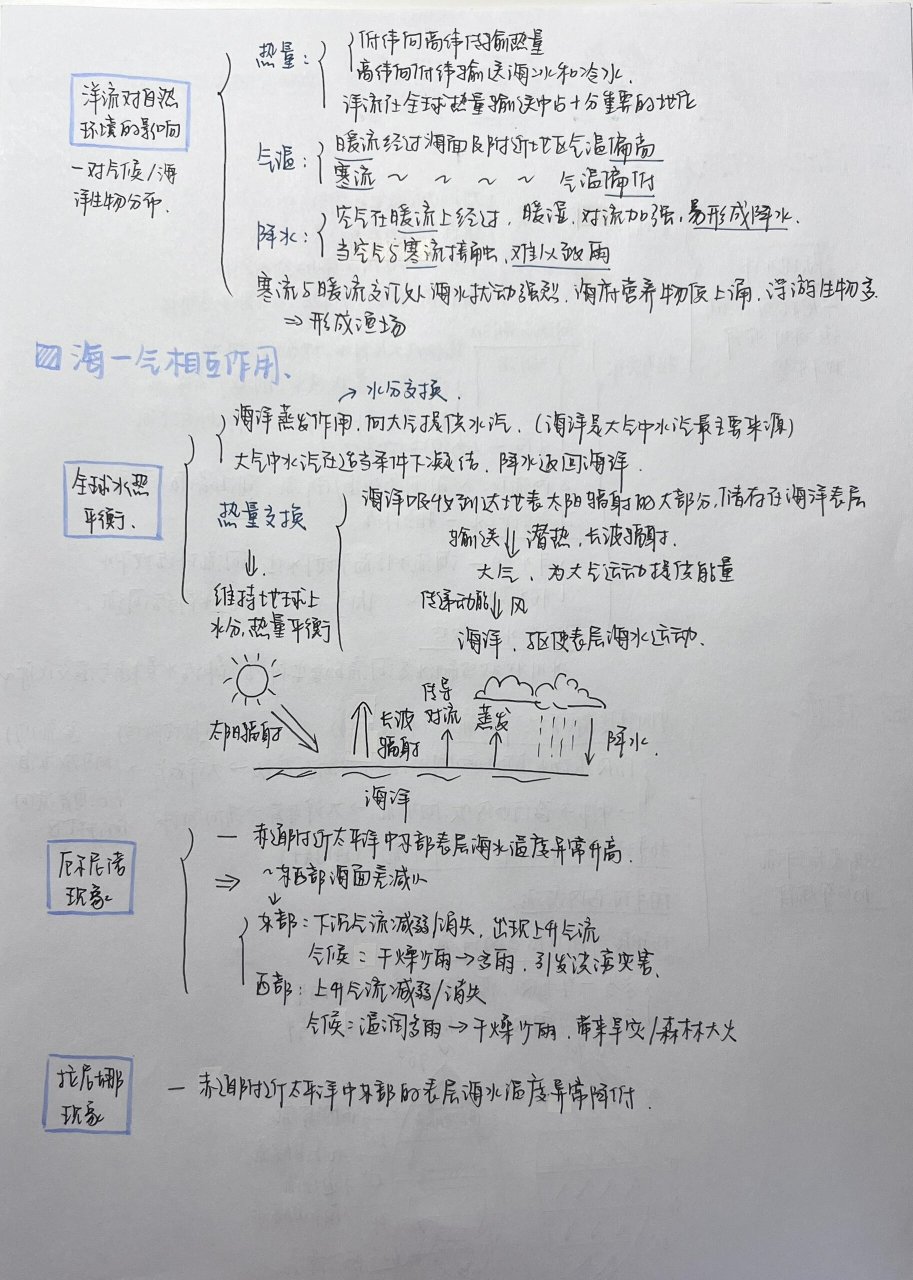 洋流对自然
环境的影响
一对气候/海
洋生物分布.
热量:
低纬向高纬传输热量
高纬向低纬输送海冰和冷水.
洋流在全球热量输送中占十分重要的地位
气温:
暖流经过海面及附近地区气温偏高
寒流 ~ ~ ~ ~ 气温偏低
降水:
空气在暖流上经过, 暖湿, 对流加强, 易形成降水.
当空气与寒流接触, 难以致雨
寒流与暖流交汇处海水扰动强烈, 海底营养物质上涌, 浮游生物多
⇒ 形成渔场
海一气相互作用、
→ 水分交换.
全球水热
平衡、
海洋蒸发作用, 向大气提供水汽. (海洋是大气中水汽最主要来源)
大气中水汽在适当条件下凝结, 降水返回海洋.
热量交换
↓.
维持地球上
水分,热量平衡
海洋吸收到达地表太阳辐射的大部分, 储存在海洋表层
输送↓潜热, 长波辐射.
大气、为大气运动提供能量
传递动能↓风
海洋、驱使表层海水运动.
太阳辐射
长波
辐射
传导
对流
蒸发
降水.
海洋
厄尔尼诺
现象
一 赤道附近太平洋中东部表层海水温度异常升高.
⇒ ~东西部海面差减小
↓
东部: 下沉气流减弱/消失, 出现上升气流
气候: 干燥少雨→多雨, 引发洪涝灾害.
西部: 上升气流减弱/消失
气候: 温润多雨→干燥少雨, 带来旱灾/森林大火
拉尼娜
现象
一 赤道附近太平洋中东部的表层海水温度异常降低.